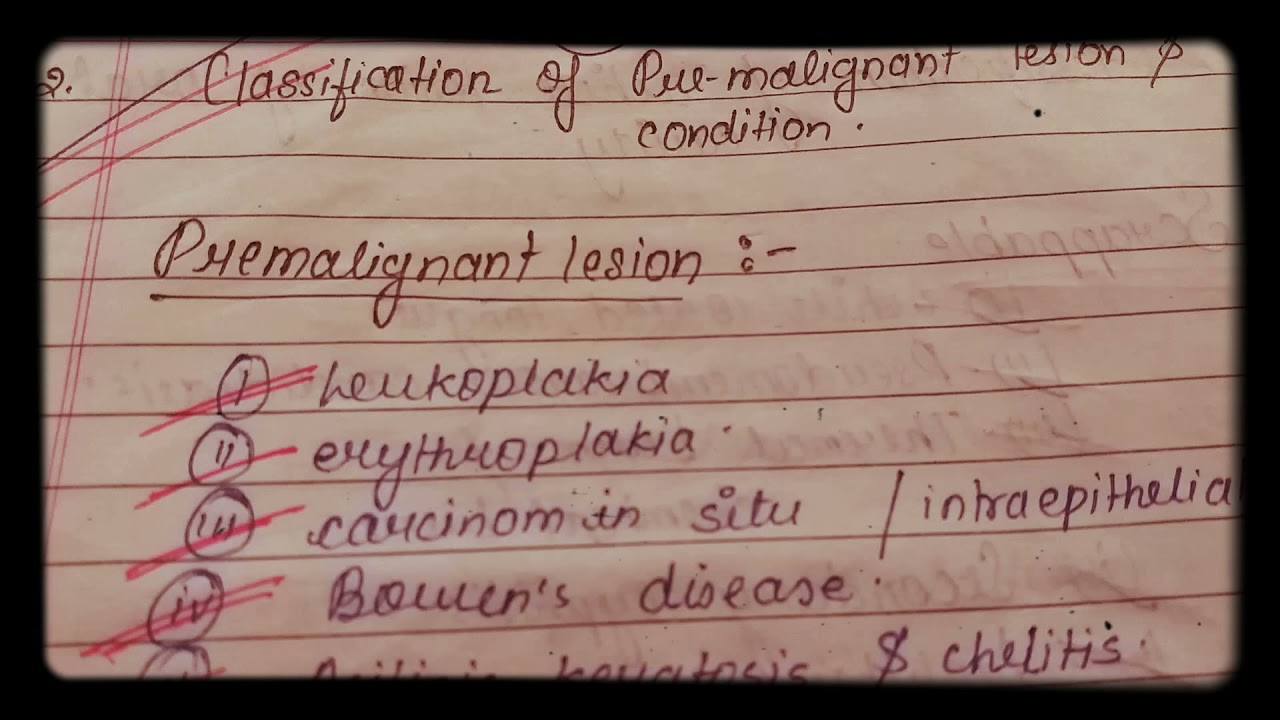 2. Classification of Pre-malignant lesion &
condition.
Premalignant lesion :-
(i) Leukoplakia
(ii) erythroplakia.
(iii) carcinom in situ / intraepithelia
(iv) Bowen's disease.
keratosis & chelitis.